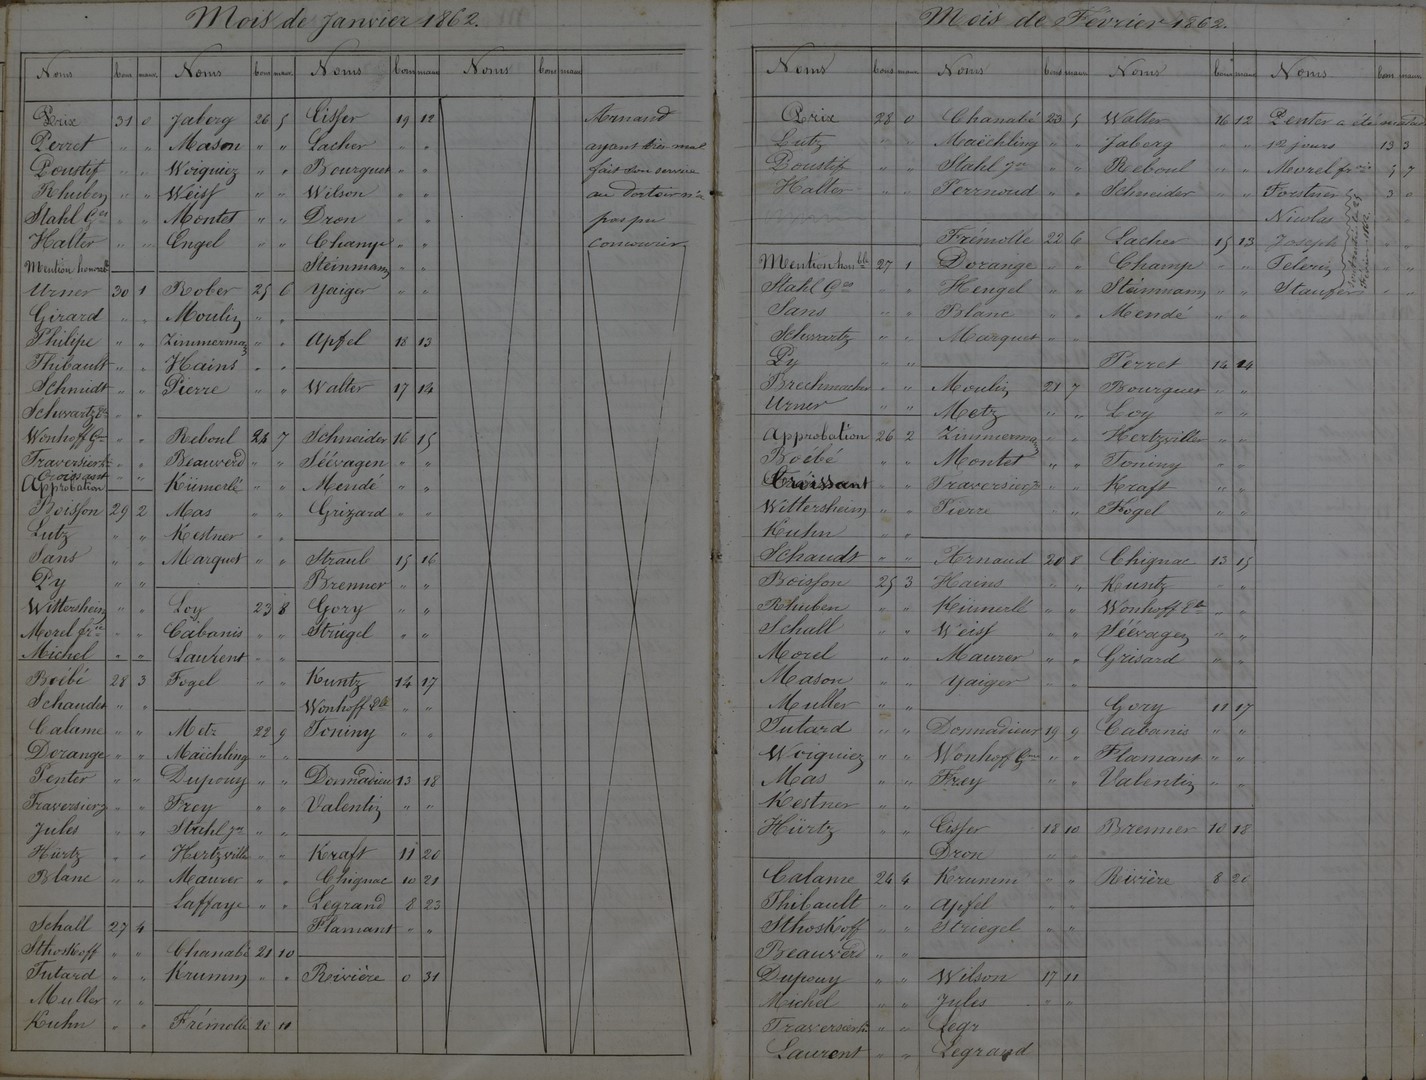 Mois de Janvier 1862.
Noms bons mauv. Noms bons mauv. Noms bons mauv. Noms bons mauv.
Prix 31 0
Perret " "
Poustif " "
Rhuben " "
Stahl Ges " "
Halter " "
Mention honorable
Urner 30 1
Girard " "
Philipe " "
Thibault " "
Schmidt " "
Schwartz " "
Wonhoff " "
Traversier " "
Croissant " "
Approbation
Boisson 29 2
Lutz " "
Sans " "
Py " "
Wittersheim " "
Morel " "
Michel " "
Boëbé 28 3
Schaudt " "
Calame " "
Dorange " "
Penter " "
Traversier " "
Jules " "
Hürtz " "
Blanc " "
Schall 27 4
Sthoskoff " "
Tutard " "
Muller " "
Kuhn " "
Jaberg 26 5
Mason " "
Woigniez " "
Weiss " "
Montet " "
Engel " "
Rober 25 6
Moulin " "
Zimmerman " "
Hains " "
Pierre " "
Reboul 24 7
Beauverd " "
Kümerlé " "
Mas " "
Kestner " "
Marquet " "
Loy 23 8
Cabanis " "
Laurent " "
Fogel " "
Metz 22 9
Maëchling " "
Dupouy " "
Frey " "
Stahl Jn " "
Hertzviller " "
Maurer " "
Laffaye " "
Chanabé 21 10
Krumm " "
Frémolle 20 11
Cisser 19 12
Lacher " "
Bourguet " "
Wilson " "
Dron " "
Champ " "
Steinmann " "
Yaiger " "
Apfel 18 13
Walter 17 14
Schneider 16 15
Séévagen " "
Mendé " "
Grizard " "
Straub 15 16
Brenner " "
Gory " "
Striegel " "
Kuntz 14 17
Wonhoff " "
Toniny " "
Donnadieu 13 18
Valentin " "
Kraft 11 20
Chignac 10 21
Legrand 8 23
Flamant " "
Rivière 0 31
Arnaud
ayant très mal
fait son service
au dortoir n'a
pas pu
concourir
Mois de Février 1862.
Noms bons mauv. Noms bons mauv. Noms bons mauv. Noms bons mauv.
Prix 28 0
Lutz " "
Poustif " "
Halter " "
Mention honble 27 1
Stahl Ges " "
Sans " "
Schwartz " "
Py " "
Brechmacher " "
Urner " "
Approbation 26 2
Boëbé " "
Croissant " "
Wittersheim " "
Kuhn " "
Schaudt " "
Boisson 25 3
Rhuben " "
Schall " "
Morel " "
Mason " "
Muller " "
Tutard " "
Woigniez " "
Mas " "
Kestner " "
Hürtz " "
Calame 24 4
Thibault " "
Sthoskoff " "
Beauverd " "
Dupouy " "
Michel " "
Traversier " "
Laurent " "
Chanabé 23 5
Maëchling " "
Stahl Jn " "
Perrnoud " "
Frémolle 22 6
Dorange " "
Hengel " "
Blanc " "
Marquet " "
Moulin 21 7
Metz " "
Zimmerman " "
Montet " "
Traversier " "
Pierre " "
Arnaud 20 8
Hains " "
Kümerlé " "
Weiss " "
Maurer " "
Yaiger " "
Donnadieu 19 9
Wonhoff " "
Frey " "
Cisser 18 10
Dron " "
Krumm " "
Apfel " "
Striegel " "
Wilson 17 11
Jules " "
Legr
Legrand
Walter 16 12
Jaberg " "
Reboul " "
Schneider " "
Lacher 15 13
Champ " "
Steinmann " "
Mendé " "
Perret 14 14
Bourguet " "
Loy " "
Hertzviller " "
Toniny " "
Kraft " "
Fogel " "
Chignac 13 15
Kuntz " "
Wonhoff " "
Séévagen " "
Grisard " "
Gory 11 17
Cabanis " "
Flamant " "
Valentin " "
Brenner 10 18
Rivière 8 20
Penter a été
12 jours 13 3
Morel 5 7
Forstner 3 0
Nicolas " "
Joseph " "
Stauffer " "